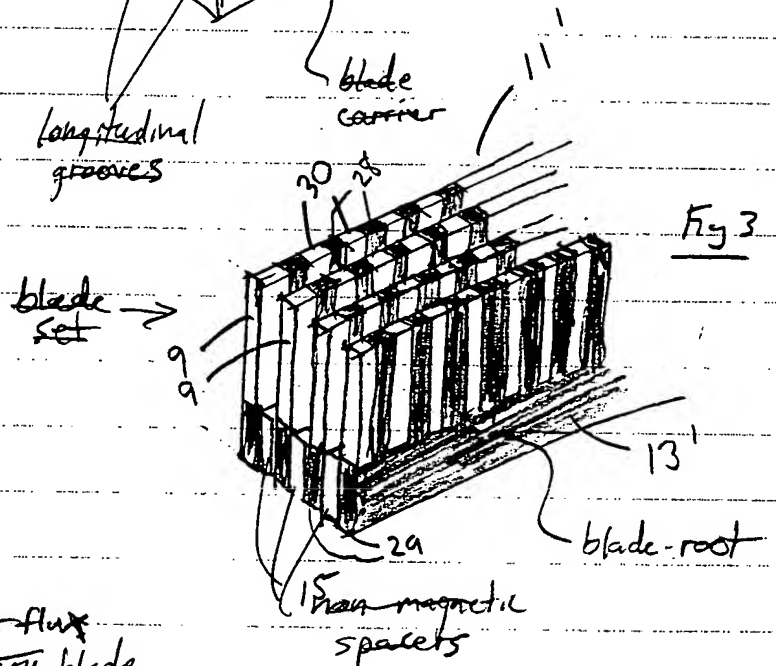 blade
carrier
11'
longitudinal
grooves
30
28
Fig 3
blade
set
9
9
13'
29
blade-root
15
non-magnetic
spacers
flux
blade